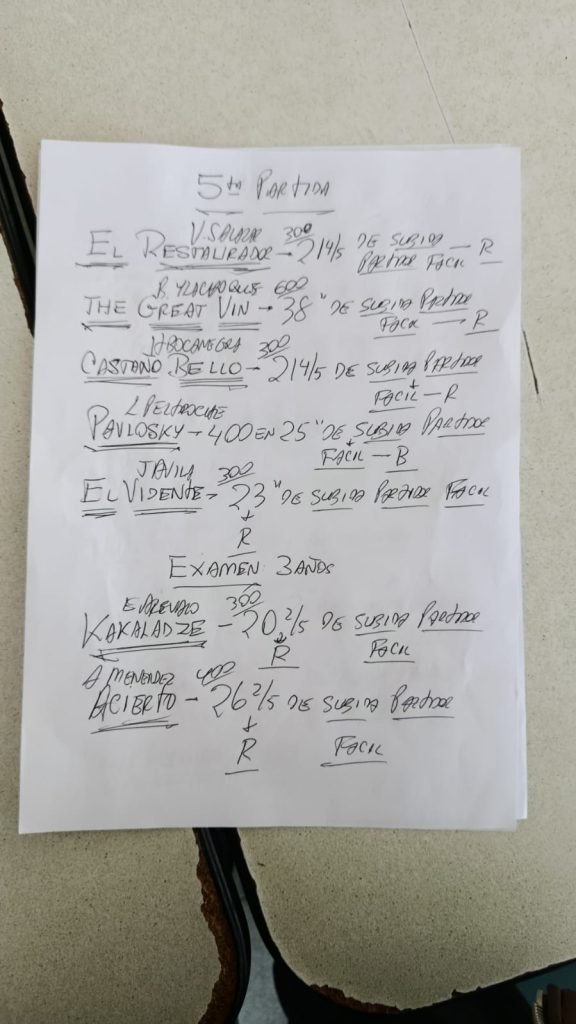 5ta PARTIDA
V. SALAZAR 300
EL RESTAURADOR - 21 4/5 DE SUBIDA PARTIDOR FACIL - R
B. YLACHOQUE 600
THE GREAT VIN - 38" DE SUBIDA PARTIDOR FACIL - R
BOCANEGRA 300
CASTAÑO BELLO - 21 4/5 DE SUBIDA PARTIDOR FACIL - R
L PELTROCHE
PAVLOSKY - 400 EN 25" DE SUBIDA PARTIDOR FACIL - B
J AVILA 300
EL VIDENTE - 23" DE SUBIDA PARTIDOR FACIL
R
EXAMEN 3 AÑOS
E AREVALO 300
KAKALADZE - 20 2/5 DE SUBIDA PARTIDOR FACIL
R
A MENENDEZ 400
ACIERTO - 26 2/5 DE SUBIDA PARTIDOR
R FACIL